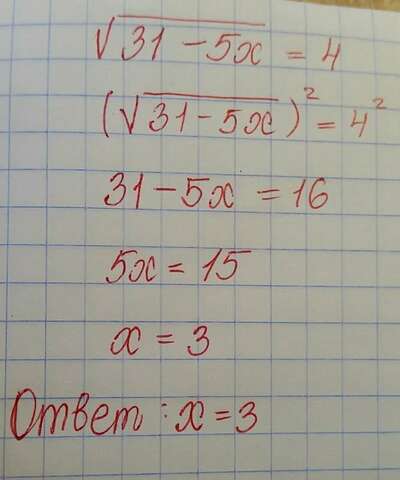 √31 - 5x = 4
(√31 - 5x)² = 4²
31 - 5x = 16
5x = 15
x = 3
Ответ: x = 3